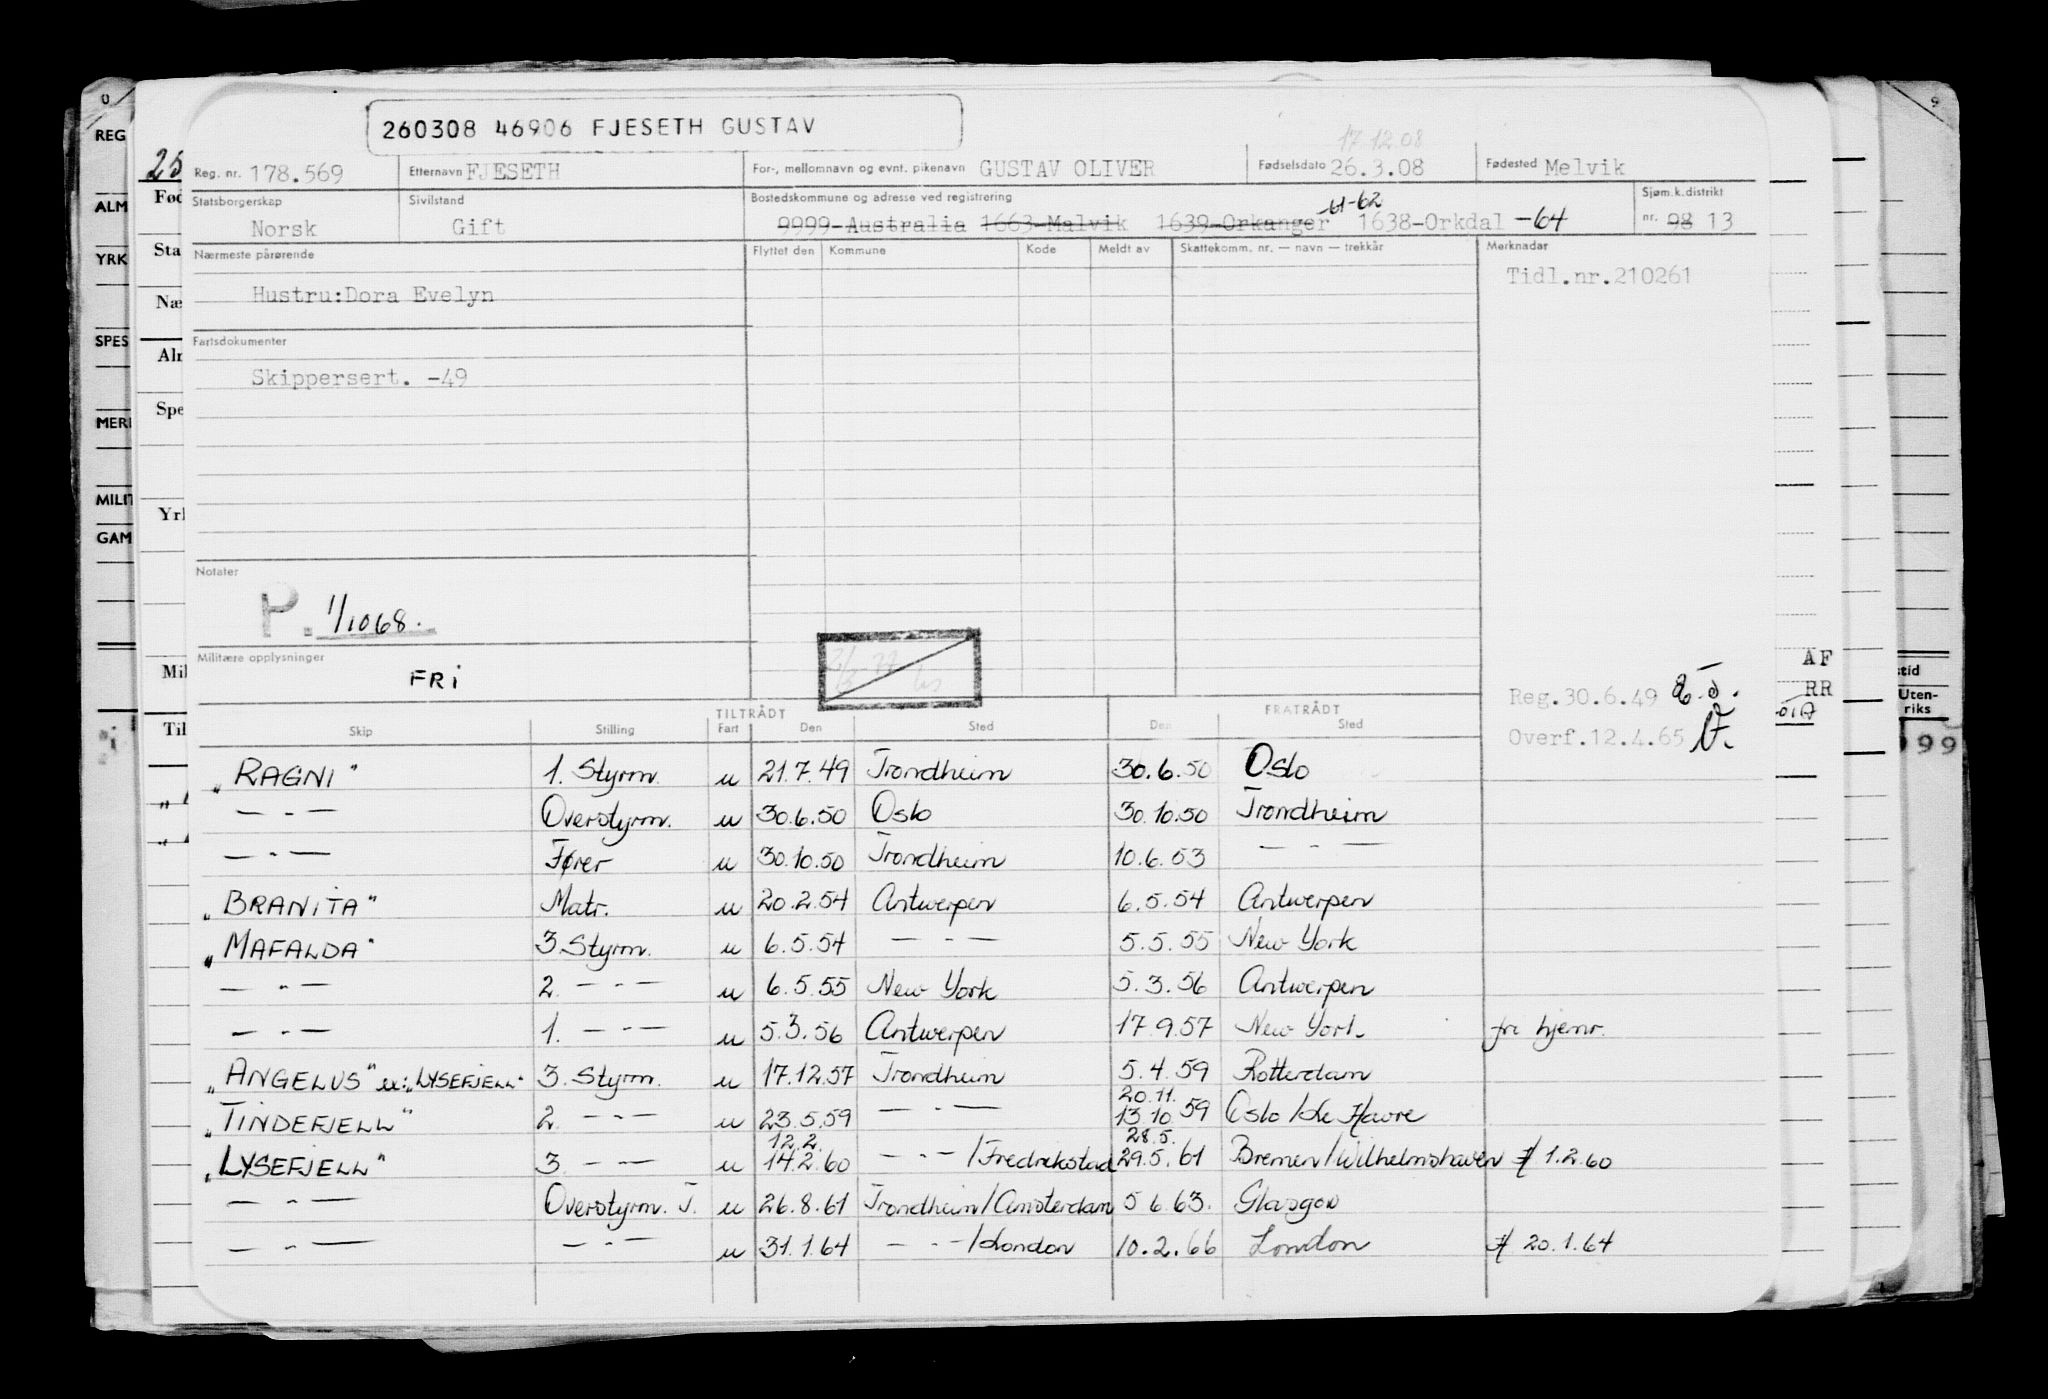 260308 46906 FJESETH GUSTAV
17.12.08
25 Reg. nr. 178.569 Etternavn FJESETH For-, mellomnavn og evnt. pikenavn GUSTAV OLIVER Fødselsdato 26.3.08 Fødested Melvik
Statsborgerskap Sivilstand Bostedskommune og adresse ved registrering Sjøm.k.distrikt
Norsk Gift 9999-Australia 1663-Malvik 1639-Orkanger -61-62 1638-Orkdal -64 nr. 98 13
Nærmeste pårørende Flyttet den Kommune Kode Meldt av Skattekomm. nr. — navn — trekkår Merknadar
Hustru:Dora Evelyn Tidl.nr.210261
Fartsdokumenter
Skippersert. -49
Notater
P. 1/10 68.
Militære opplysninger
FRi
Reg.30.6.49
Overf.12.4.65
TILTRÅDT FRATRÅDT
Skip Stilling Fart Den Sted Den Sted
„RAGNI" 1. Styrm. u 21.7.49 Trondheim 30.6.50 Oslo
— " — Overstyrm. u 30.6.50 Oslo 30.10.50 Trondheim
— " — Fører u 30.10.50 Trondheim 10.6.53 — " —
„BRANITA" Matr. u 20.2.54 Antwerpen 6.5.54 Antwerpen
„MAFALDA" 3.Styrm. u 6.5.54 — " — 5.5.55 New York
— " — 2. — " — u 6.5.55 New York 5.3.56 Antwerpen
— " — 1. — " — u 5.3.56 Antwerpen 17.9.57 New York fri hjemr.
„ANGELUS" u: „LYSEFJELL" 3. Styrm. u 17.12.57 Trondheim 5.4.59 Rotterdam
„TINDEFJELL" 2. — " — u 23.5.59 — " — 20.11. 13.10 59 Oslo/Le Havre
„LYSEFJELL" 3. — " — u 12.2. 14.2.60 — " — /Fredrikstad 28.5. 29.5.61 Bremen/Wilhelmshaven 1.2.60
— " — Overstyrm. T. u 26.8.61 Trondheim/Amsterdam 5.6.63. Glasgow
— " — — " — u 31.1.64 — " — /London 10.2.66 London 20.1.64
REG
ALM
YRK
SPES
MERI
MILIT
GAM
Fød
Sta
Næ
Alr
Spe
Yrl
Mil
Til
AF
RR
stid
Uten-
riks
99